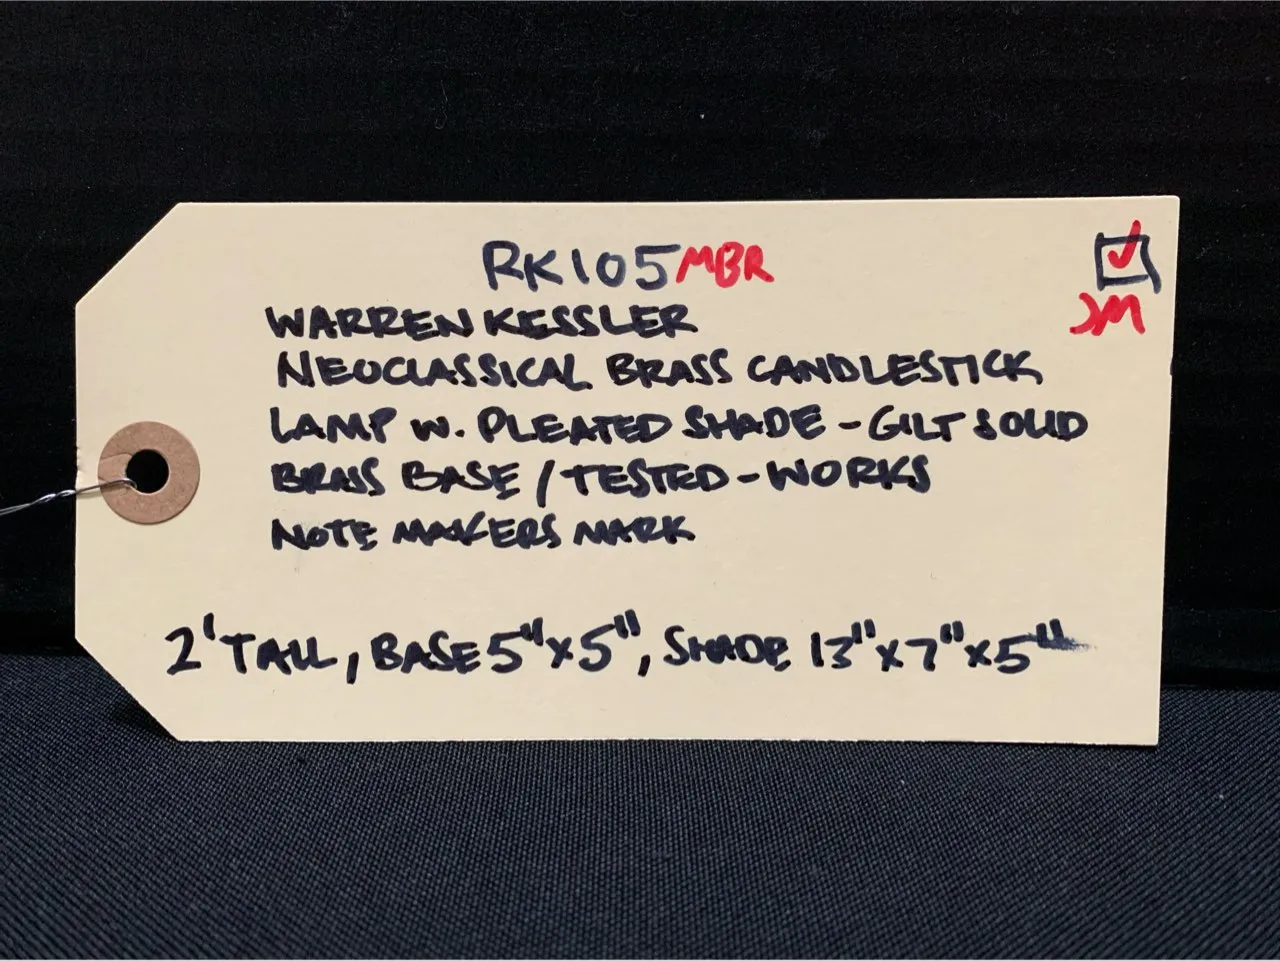 RK105 MBR
✓
JM
WARREN KESSLER
NEOCLASSICAL BRASS CANDLESTICK
LAMP W. PLEATED SHADE - GILT SOLID
BRASS BASE / TESTED - WORKS
NOTE MAKERS MARK
2' TALL, BASE 5" x 5", SHADE 13" x 7" x 5"